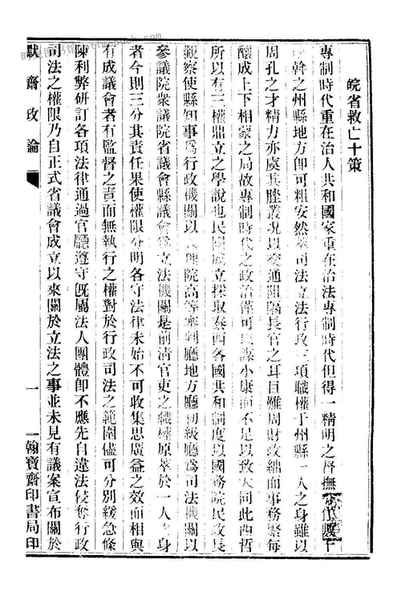 皖省救亡十策
專制時代重在治人共和國家重在治法專制時代但得一精明之督撫
幹之州縣地方即可粗安然萃司法立法行政三項職權于州縣一人之身雖以
周孔之才精力亦虞其脞叢況以交通阻隔長官之耳目難周財政絀而事務緊每
釀成上下相蒙之局故專制時代之政治僅可以謀小康而不足以致大同此西哲
所以有三權鼎立之學說也民國成立採取泰西各國共和制度以國務院民政長
觀察使縣知事爲行政機關以院高等審判廳地方廳初級廳爲司法機關以
參議院衆議院省議會縣議會爲立法機關是前清官吏之職權原萃於一人之身
者今則三分其責任果使權限分明各守法律未始不可收集思廣益之效而相與
有成議會者有監督之責而無執行之權對於行政司法之範圍儘可分別緩急條
陳利弊研訂各項法律通過官廳遵守既屬法人團體即不應先自違法侵奪行政
司法之權限乃自正式省議會成立以來關於立法之事並未見有議案宣布關於
默齋政論
一
翰寶齋印書局印